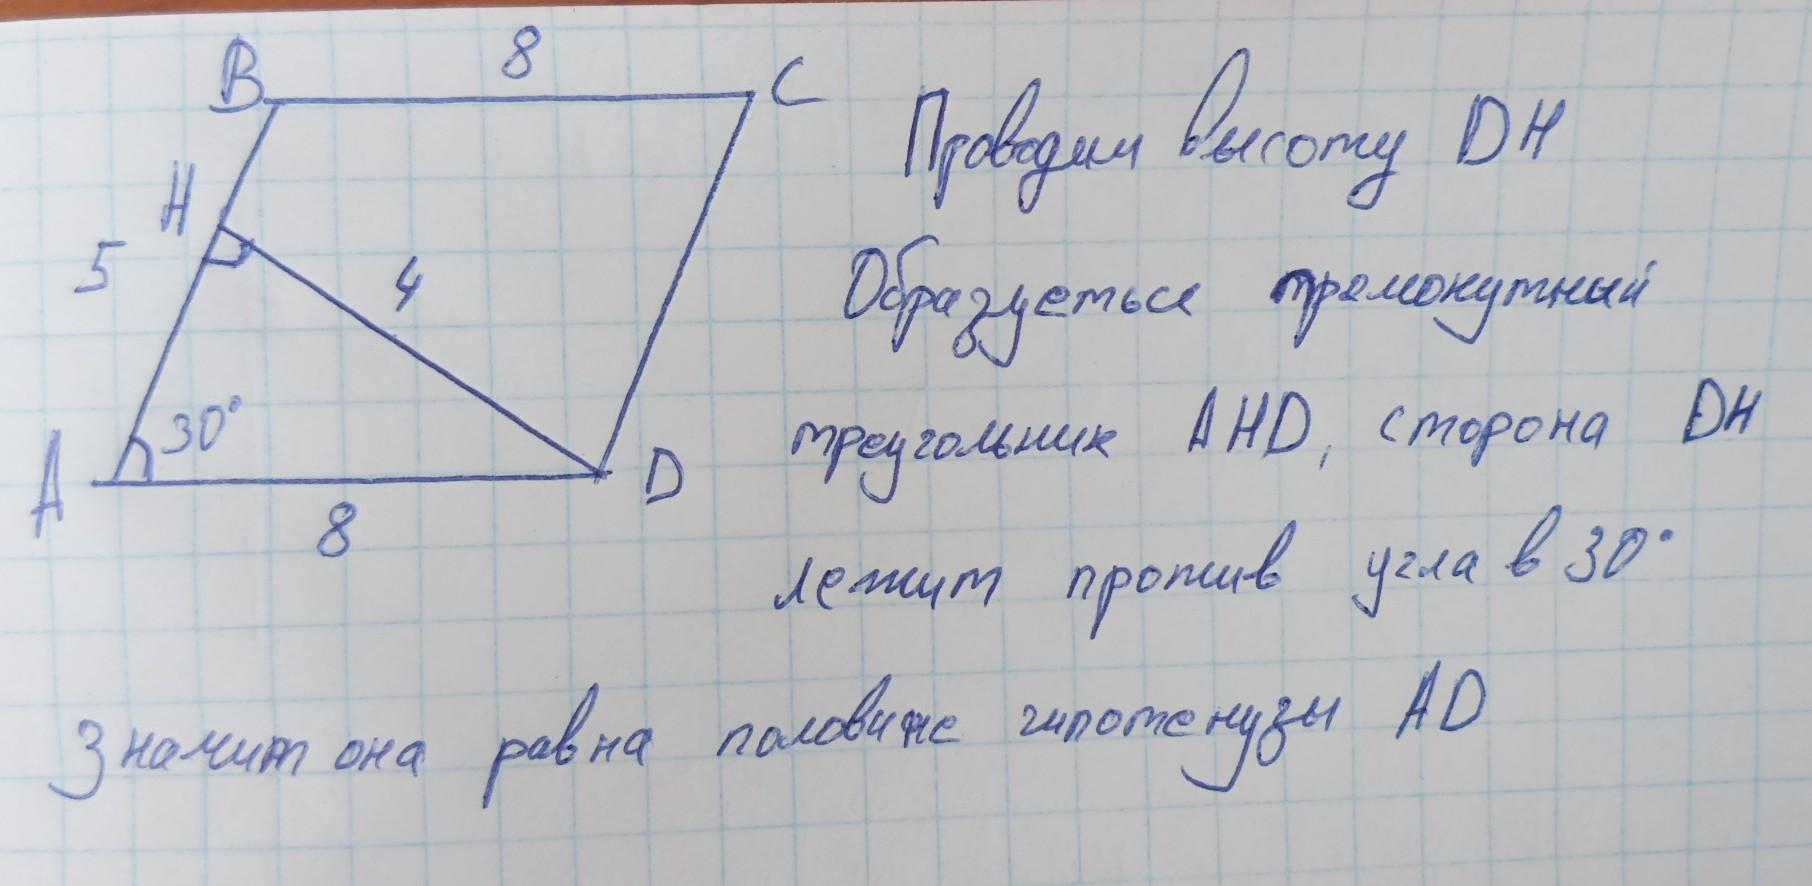 B 8 C
Проводим высоту DH
H
5 4
Образуеться премокутный
30°
треугольник AHD, сторона DH
A D
8
лежит против угла в 30°
Значит она равна половине гипотенузы AD